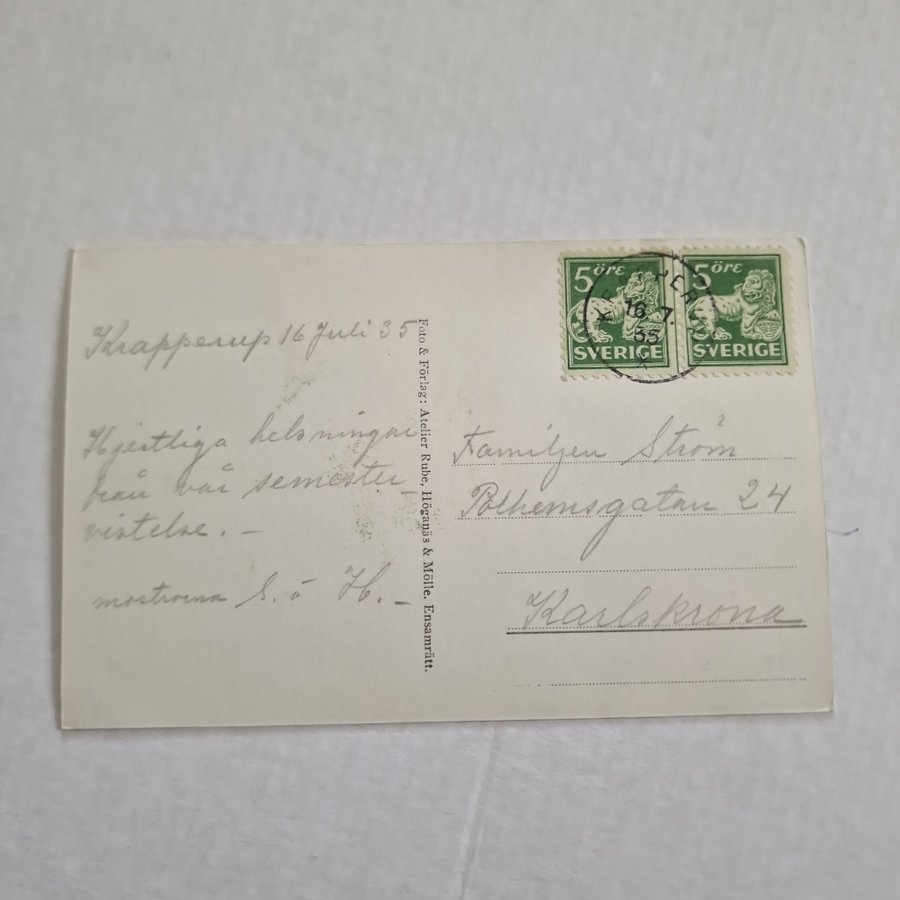 Krapperup 16 Juli 35
Hjertliga helsningar
från vår semester
vistelse. –
mostrarna S. o H. –
Foto & Förlag: Atelier Rube, Höganäs & Mölle. Ensamrätt.
5 öre
SVERIGE
5 öre
SVERIGE
16 7.
35
Familjen Ström
Polhemsgatan 24
Karlskrona